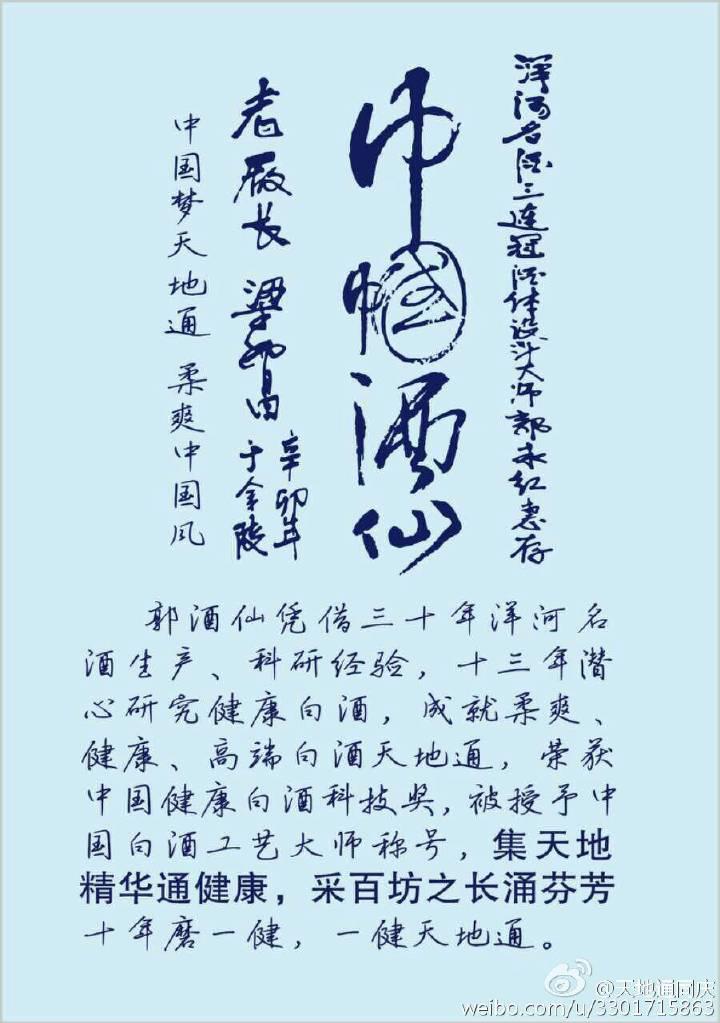 洋河名酒三连冠酒体设计大师郭永红惠存
巾帼酒仙
老厂长
辛卯年
于金陵
中国梦天地通 柔爽中国风
郭酒仙凭借三十年洋河名
酒生产、科研经验，十三年潜
心研究健康白酒，成就柔爽、
健康、高端白酒天地通，荣获
中国健康白酒科技奖，被授予中
国白酒工艺大师称号，集天地
精华通健康，采百坊之长涌芬芳
十年磨一健，一健天地通。
@天地通同庆
weibo.com/u/3301715863